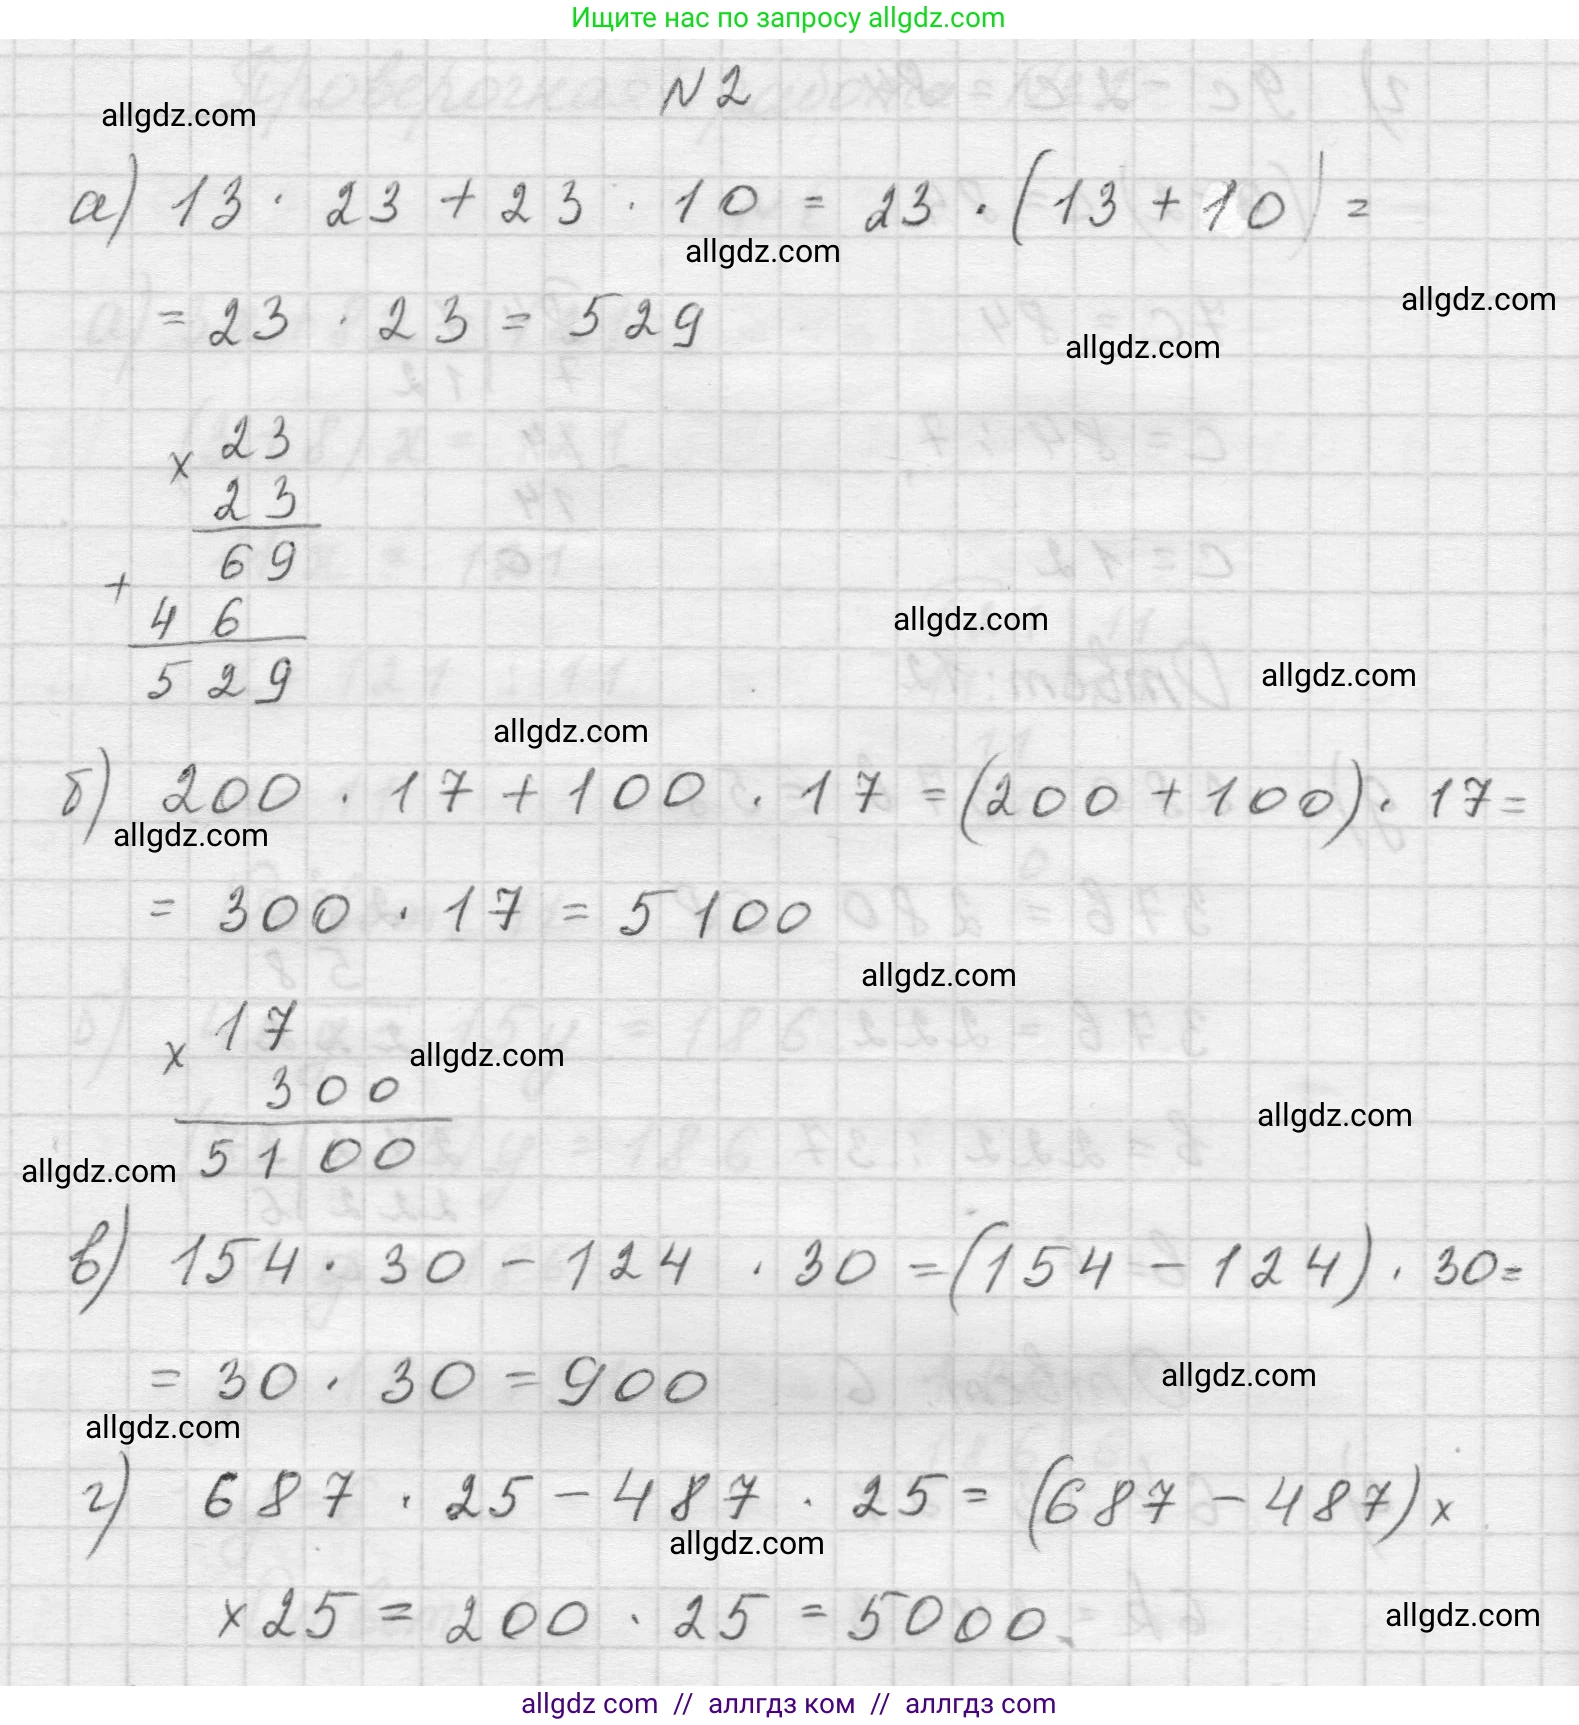 Ищите нас по запросу allgdz.com
N 2
allgdz.com
а) 13 · 23 + 23 · 10 = 23 · (13 + 10) =
allgdz.com
allgdz.com
= 23 · 23 = 529
allgdz.com
x 23
23
69
+
46
529
allgdz.com
allgdz.com
allgdz.com
б) 200 · 17 + 100 · 17 = (200 + 100) · 17 =
allgdz.com
= 300 · 17 = 5100
allgdz.com
x 17
allgdz.com
300
allgdz.com
5100
allgdz.com
в) 154 · 30 - 124 · 30 = (154 - 124) · 30 =
= 30 · 30 = 900
allgdz.com
allgdz.com
г) 687 · 25 - 487 · 25 = (687 - 487) x
allgdz.com
x 25 = 200 · 25 = 5000.
allgdz.com
allgdz com // аллгдз ком // аллгдз com